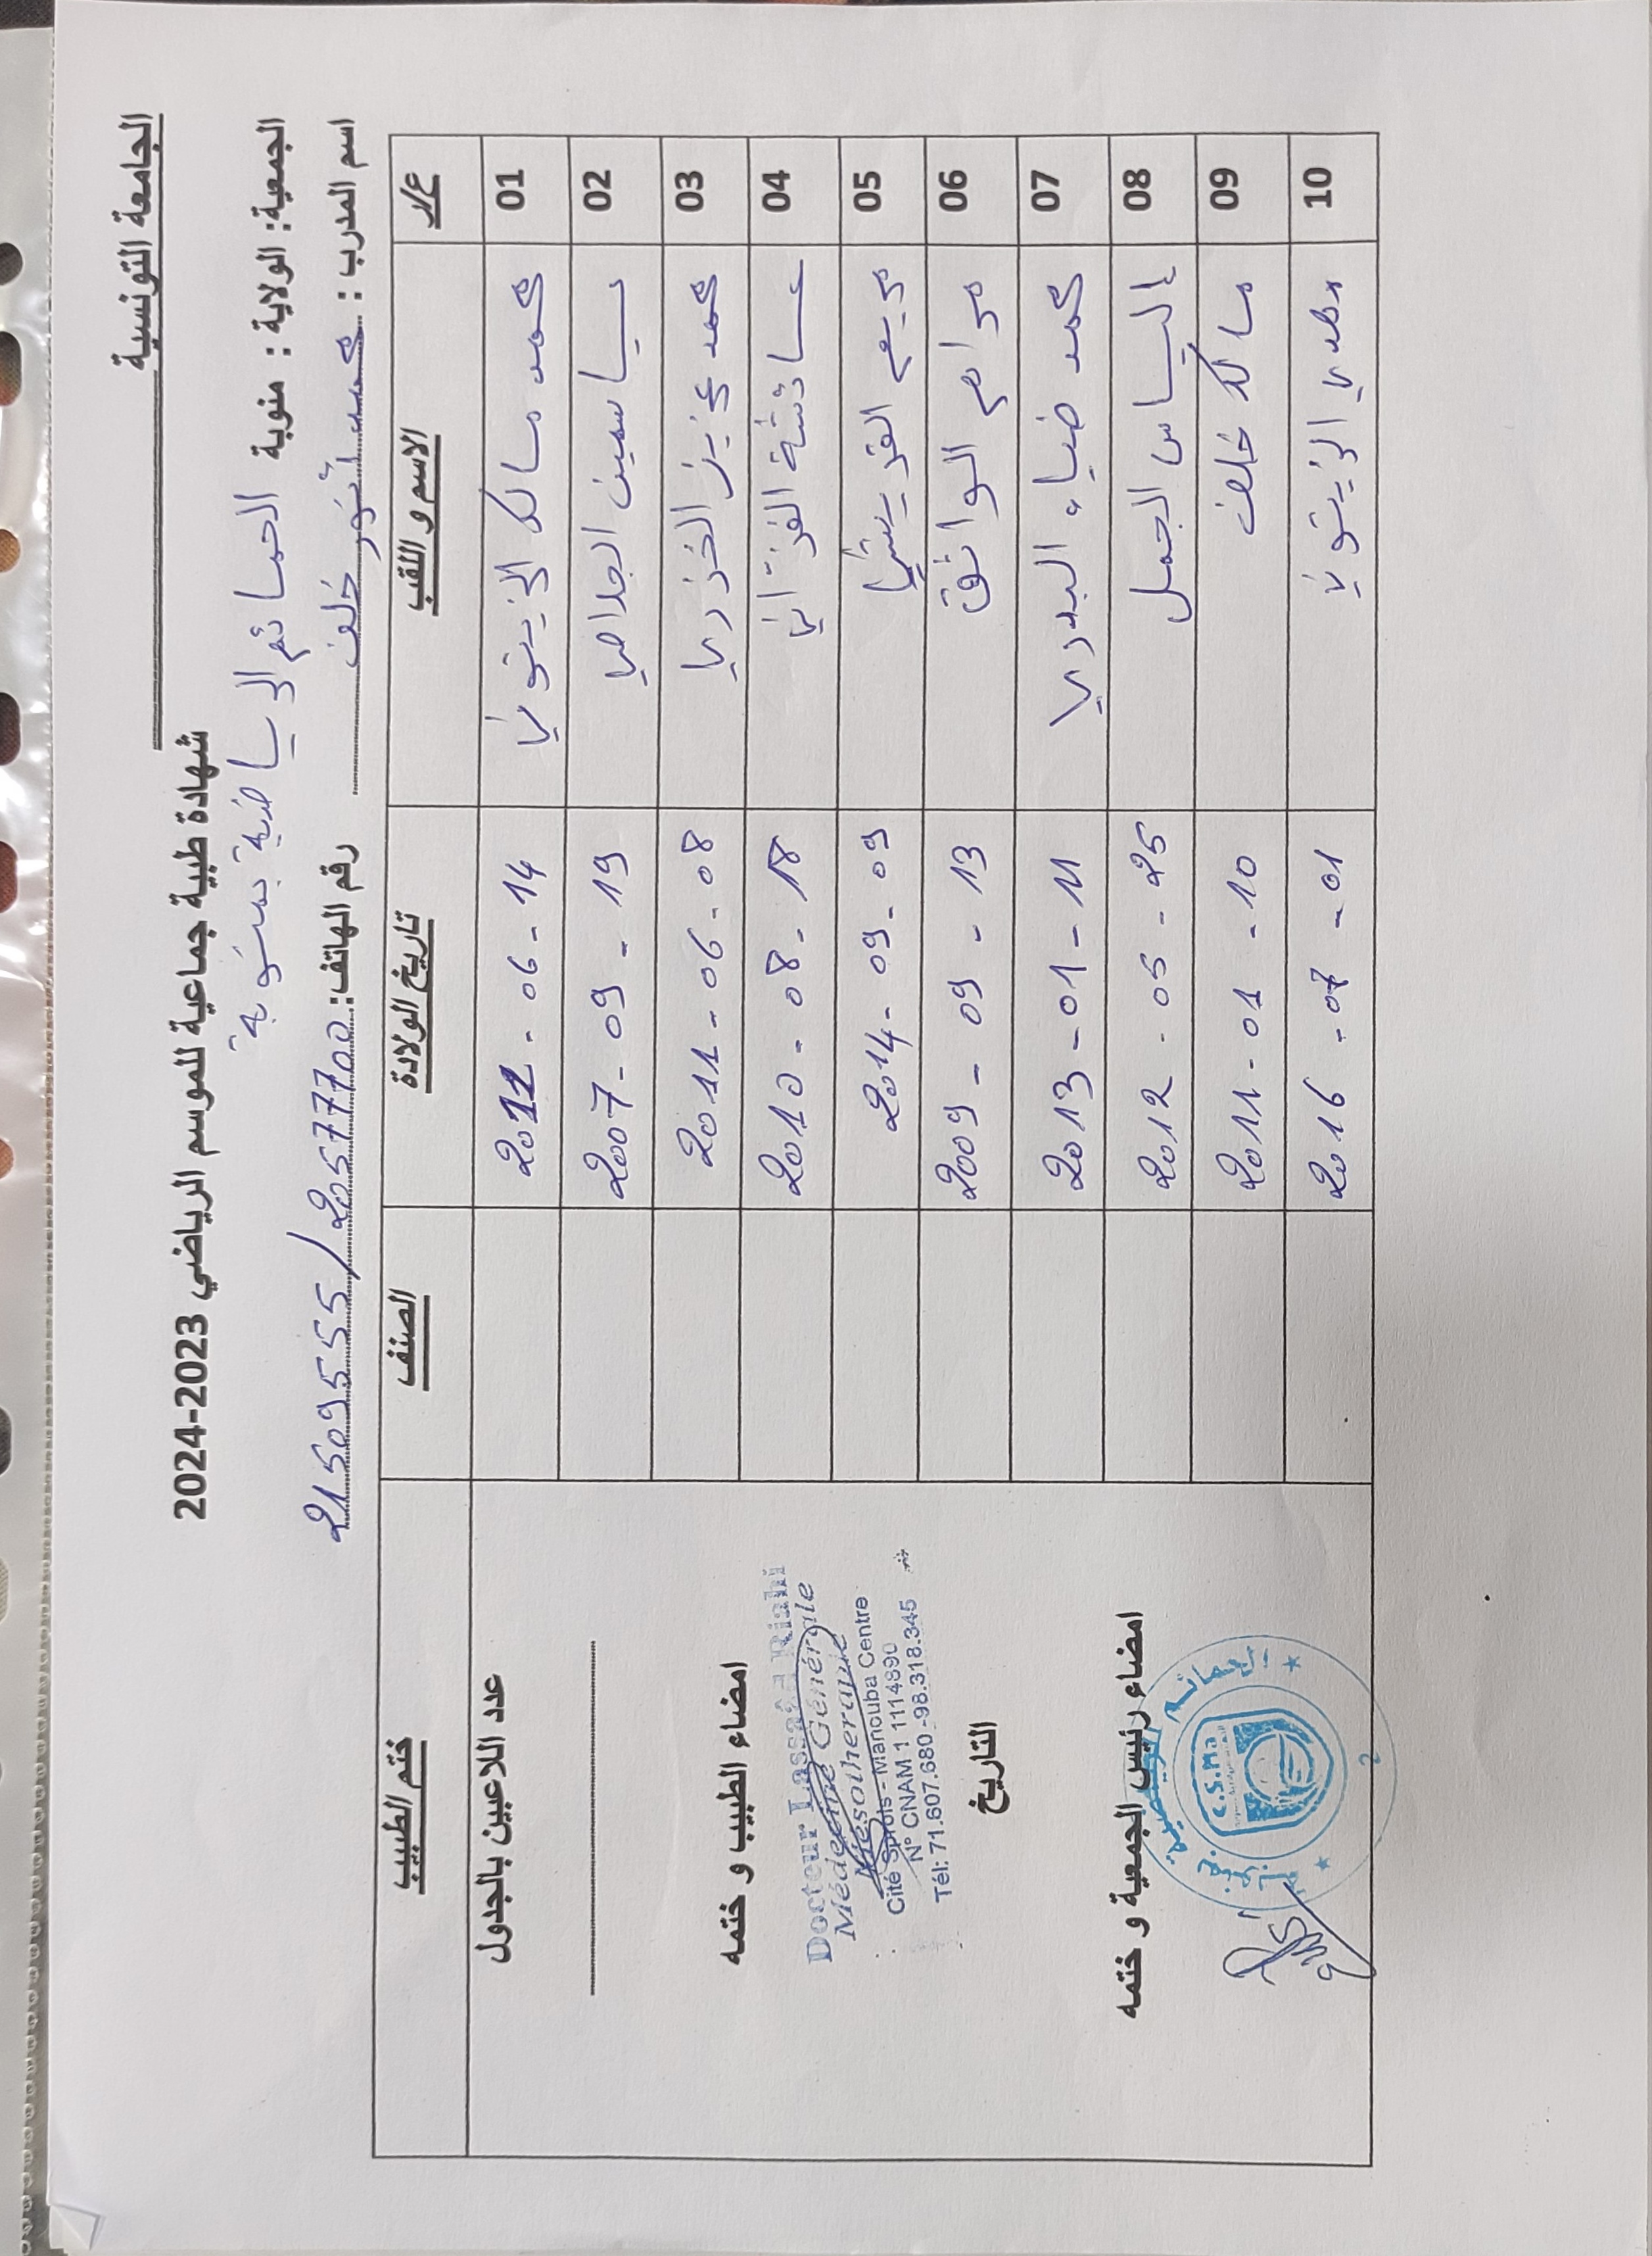 الجامعة التونسية
شهادة طبية جماعية للموسم الرياضي 2023-2024
الجمعية: الولاية : منوبة الحمائم الرياضية بمنوبة
اسم المدرب : محمد أنور خلف رقم الهاتف: 20577700 / 21509555
ع/ر الاسم و اللقب تاريخ الولادة الصنف ختم الطبيب
01 محمد مالك الزيتوني 2011 - 06 - 14
02 ياسمين الجلاصي 2007 - 09 - 19
03 محمد عزيز الخزري 2011 - 06 - 08
04 عائشة الغزاني 2010 - 08 - 18
05 مريم القريشي 2014 - 09 - 09
06 مرام الواثق 2009 - 09 - 13
07 محمد ضياء البدري 2013 - 01 - 11
08 الياس الجمل 2012 - 05 - 25
09 مالك خلف 2011 - 01 - 10
10 مهدي الزيتوني 2016 - 07 - 01
عدد اللاعبين بالجدول
امضاء الطبيب و ختمه
Docteur Lassaêd Riahi
Médecine Générale
Mésotherapie
Cité Sprols - Manouba Centre
N° CNAM 1 1114890
Tél: 71.607.680 -98.318.345
التاريخ
امضاء رئيس الجمعية و ختمه
C.S.Ma